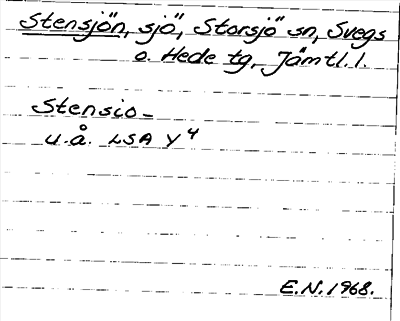 Stensjön, sjö, Storsjö sn, Svegs
o. Hede tg, Jämtl. l.
Stensio-
u.å. LSA Y4
E.N. 1968.